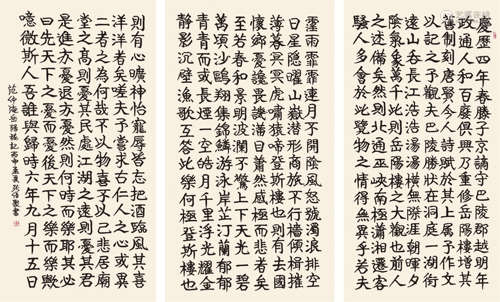 慶歷四年春滕子京謫守巴陵郡越明年
政通人和百廢俱興乃重修岳陽樓增其
舊制刻唐賢今人詩賦於其上屬予作文
以記之予觀夫巴陵勝狀在洞庭一湖銜
遠山吞長江浩浩湯湯橫無際涯朝暉夕
陰氣象萬千此則岳陽樓之大觀也前人
之述備矣然則北通巫峽南極瀟湘遷客
騷人多會於此覽物之情得無異乎若夫
霪雨霏霏連月不開陰風怒號濁浪排空
日星隱曜山嶽潛形商旅不行檣傾楫摧
薄暮冥冥虎嘯猿啼登斯樓也則有去國
懷鄉憂讒畏譏滿目蕭然感極而悲者矣
至若春和景明波瀾不驚上下天光一碧
萬頃沙鷗翔集錦鱗游泳岸芷汀蘭郁郁
青青而或長煙一空皓月千里浮光耀金
靜影沉璧漁歌互答此樂何極登斯樓也
則有心曠神怡寵辱皆忘把酒臨風其喜
洋洋者矣嗟夫予嘗求古仁人之心或異
二者之為何哉不以物喜不以己悲居廟
堂之高則憂其民處江湖之遠則憂其君
是進亦憂退亦憂然則何時而樂耶其必
曰先天下之憂而憂後天下之樂而樂歟
噫微斯人吾誰與歸時六年九月十五日
范仲淹岳陽樓記